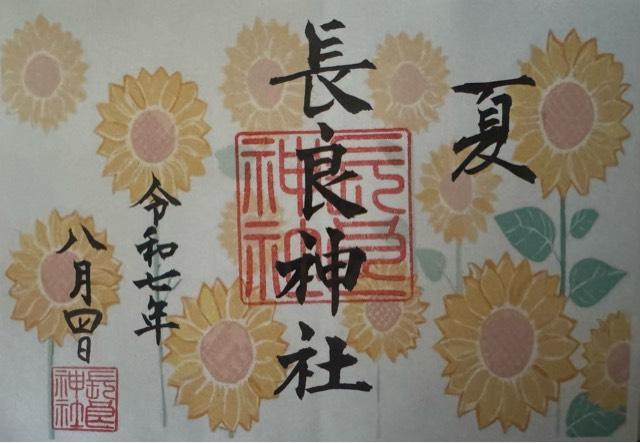 夏
長良神社
長良神社
令和七年
八月四日
長良神社